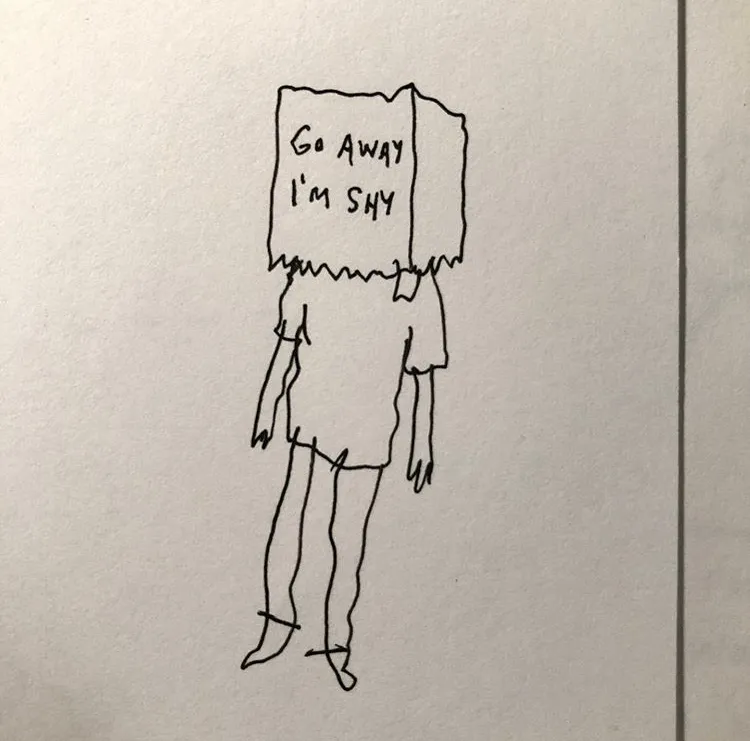 GO AWAY
I'M SHY